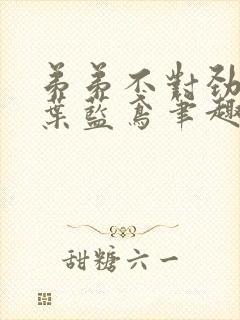 弟弟不對勁
葉藍鳶筆趣
甜糖六一